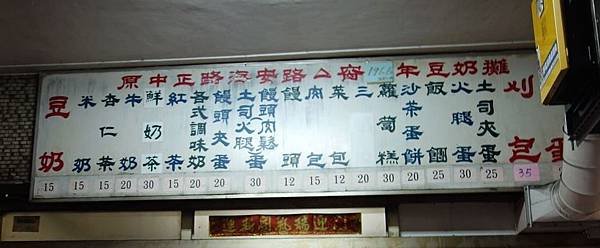 原中正路海安路公廁1966年豆奶攤
豆奶 15
米奶 15
杏仁茶 15
牛奶 20
鮮奶茶 30
紅茶 15
各式調味奶 20
饅頭夾蛋 20
土司火腿蛋 30
饅頭肉鬆
饅頭 12
肉包 15
菜包 12
三
蘿蔔糕 30
沙茶蛋餅 20
飯糰 25
火腿蛋 30
土司夾蛋 25
刈包 35
蛋